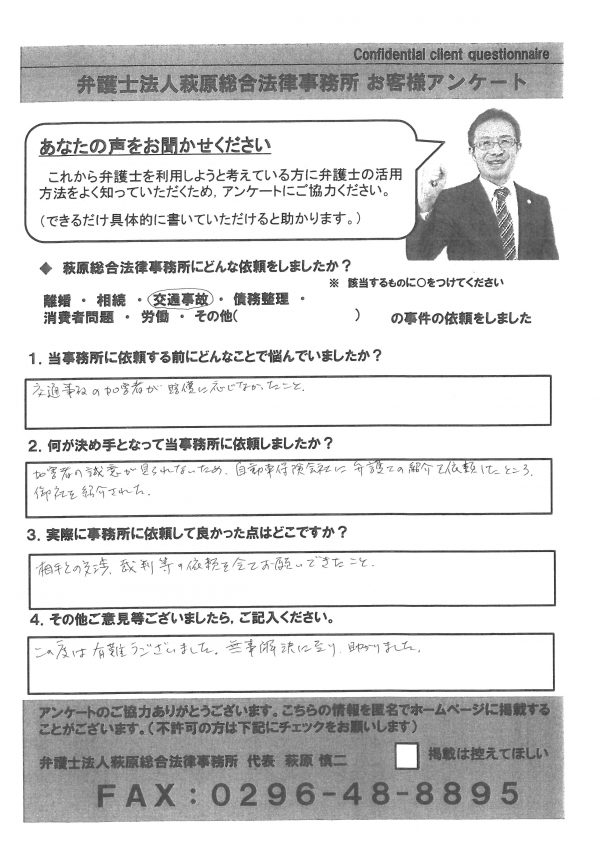 Confidential client questionnaire
弁護士法人萩原総合法律事務所 お客様アンケート
あなたの声をお聞かせください
これから弁護士を利用しようと考えている方に弁護士の活用
方法をよく知っていただくため，アンケートにご協力ください。
（できるだけ具体的に書いていただけると助かります。）
◆ 萩原総合法律事務所にどんな依頼をしましたか？
※ 該当するものに○をつけてください
離婚 ・ 相続 ・ 交通事故 ・ 債務整理 ・
消費者問題 ・ 労働 ・ その他（ ） の事件の依頼をしました
１．当事務所に依頼する前にどんなことで悩んでいましたか？
交通事故の加害者が賠償に応じなかったこと。
２．何が決め手となって当事務所に依頼しましたか？
加害者の誠意が見られないため、自動車保険会社に弁護士の紹介を依頼したところ、
御社を紹介された。
３．実際に事務所に依頼して良かった点はどこですか？
相手との交渉、裁判等の依頼を全てお願いできたこと。
４．その他ご意見等ございましたら，ご記入ください。
この度は有難うございました。無事解決に至り、助かりました。
アンケートのご協力ありがとうございます。こちらの情報を匿名でホームページに掲載する
ことがございます。（不許可の方は下記にチェックをお願いします）
弁護士法人萩原総合法律事務所 代表 萩原 慎二
掲載は控えてほしい
ＦＡＸ：０２９６-４８-８８９５